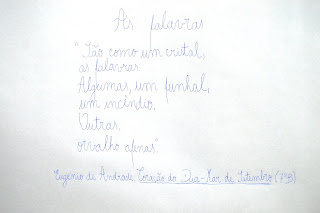 As palavras
"São como um cristal,
as palavras.
Algumas, um punhal,
um incêndio.
Outras,
orvalho apenas".
Eugénio de Andrade, Coração do Dia-Mar de Setembro (7ºB)